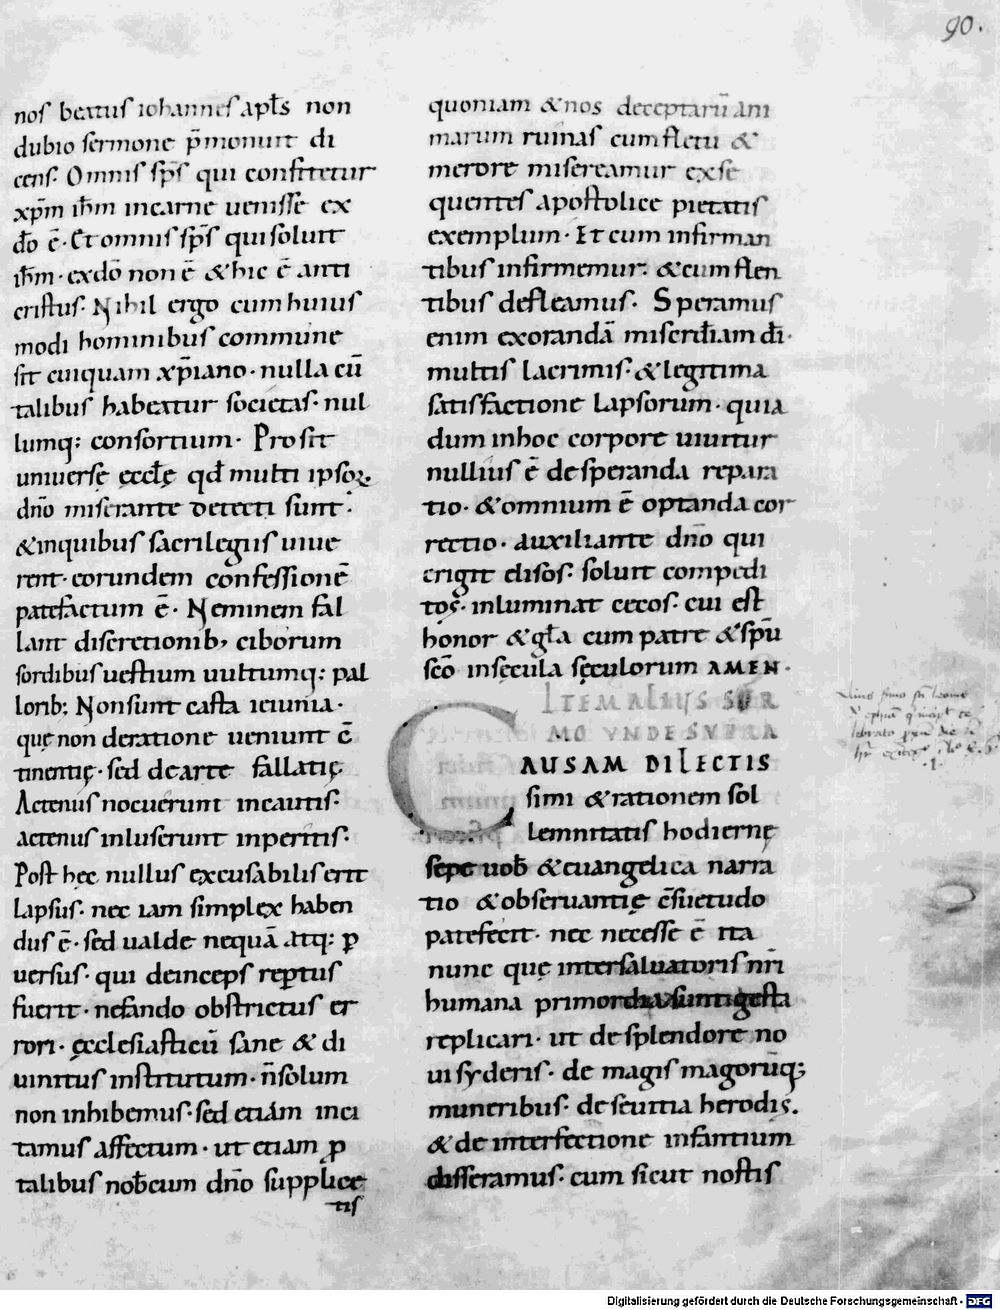 90.
nos beatus iohannes apl̄s non
dubio sermone p̄monuit di
cens. Omnis sp̄s qui confitetur
xp̄m ih̄m incarne uenisse ex
dō ē· Et omnis sp̄s qui soluit
ih̄m· ex dō non ē & hic ē anti
cristus. Nihil ergo cum huius
modi hominibus commune
sit cuiquam xp̄iano· nulla cū
talibus habeatur societas· nul
lumq; consortium· Prosit
uniuersę ęccłę qđ multi ipsoꝝ
dn̄o miserante detecti sunt·
& inquibus sacrilegiis uiue
rent· eorundem confessionē
patefactum ē· Neminem fal
lant discretionib; ciborum
sordibus uestium uultumq; pal
lorib; Non sunt casta ieiunia·
quę non deratione ueniunt ē
tinentię· sed dearte fallatię
Actenus nocuerunt incautis·
actenus inluserunt inperitis·
Post hec nullus excusabilis erit
lapsus· nec iam simplex haben
dus ē· sed ualde nequā atq; ꝑ
uersus· qui deinceps reptus
fuerit· nefando obstrictus er
rori· ęcclesiasticū sane & di
uinitus institutum· n̄solum
non inhibemus· sed etiam inci
tamus affectum· ut etiam ꝓ
talibus nobcum dn̄o supplice
tis
quoniam & nos deceptarū ani
marum ruinas cum fletu &
merore misereamur exse
quentes apostolice pietatis
exemplum· Et cum infirman
tibus infirmemur: & cum flen
tibus defleamus· Speramus
enim exorandā miserdiam dī·
multis lacrimis· & legitima
satisfactione lapsorum· quia
dum inhoc corpore uiuitur
nullius ē desperanda repara
tio· & omnium ē optanda cor
rectio· auxiliante dn̄o qui
erigit elisos· soluit compedi
tos· inluminat cecos· cui est
honor & gła cum patre & sp̄u
scō insęcula sęculorum AMEN·
ITEM ALIUS SER
MO UNDE SUPRA
CAUSAM DILECTIS
simi & rationem sol
lemnitatis hodiernę
sepe uob̄ & euangelica narra
tio & obseruantię c̄suetudo
patefecit· nec necesse ē ita
nunc quę inter saluatoris nr̄i
humana primordia sunt gesta
replicari· ut de splendore no
ui syderis· de magis magorūq;
muneribus· de seuitia herodis.
& de interfectione infantium
disseramus· cum sicut nostis
Digitalisierung gefördert durch die Deutsche Forschungsgemeinschaft - DFG